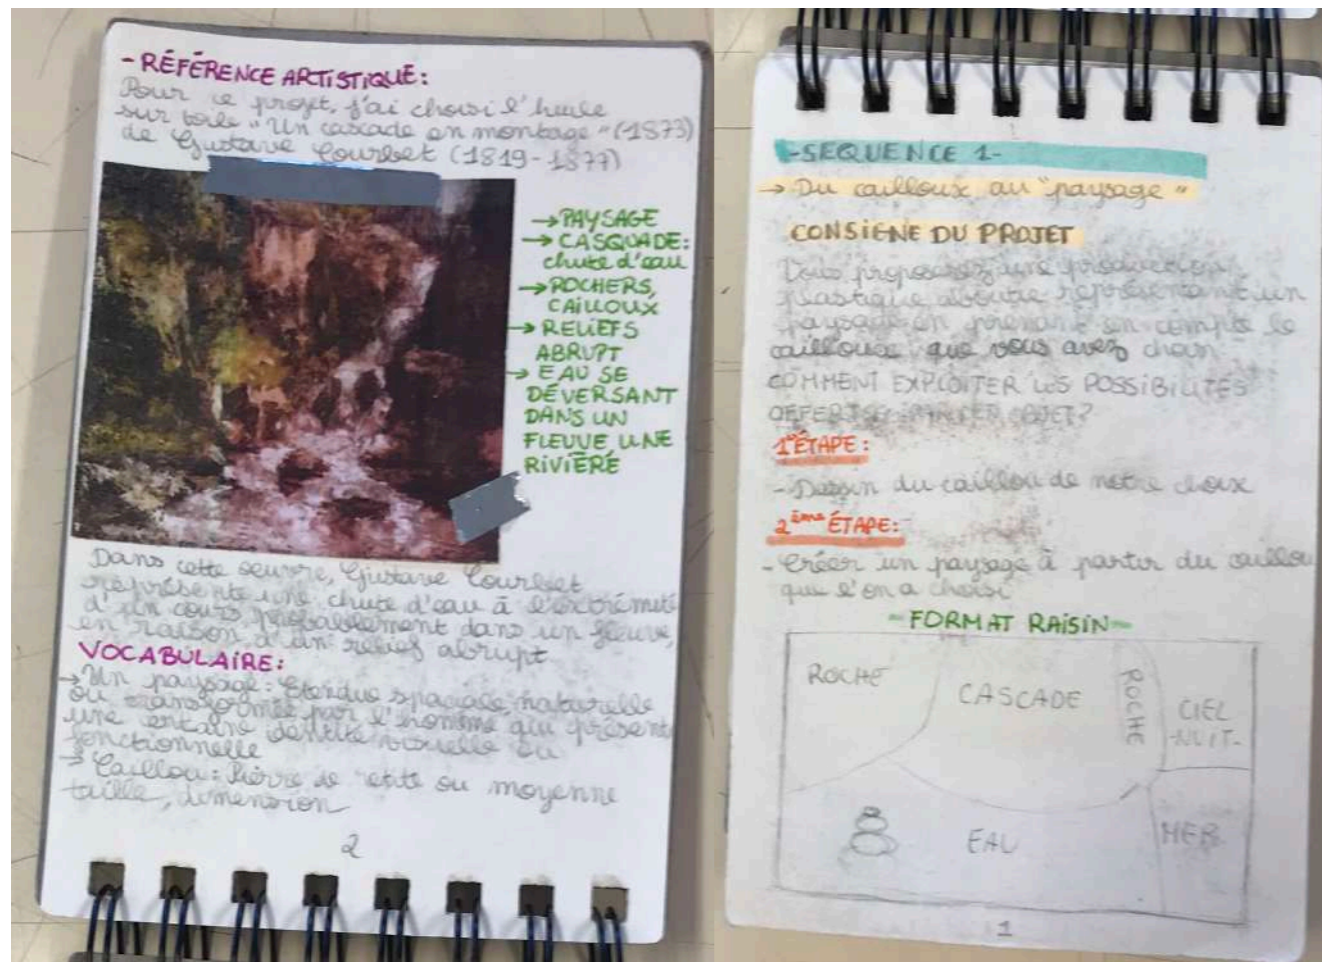 - RÉFÉRENCE ARTISTIQUE:
Pour ce projet, j'ai choisi l'huile
sur toile "Un cascade en montage" (1873)
de Gustave Courbet (1819-1877)
→ PAYSAGE
→ CASQUADE:
chute d'eau
→ ROCHERS,
CAILLOUX
→ RELIEFS
ABRUPT
→ EAU SE
DÉVERSANT
DANS UN
FLEUVE, UNE
RIVIÈRE
Dans cette oeuvre, Gustave Courbet
représente une chute d'eau à l'extrémité
d'un cours probablement dans un fleuve,
en raison d'un relief abrupt
VOCABULAIRE:
→ Un paysage: Étendue spaciale, naturelle
ou transformée par l'homme qui présente
une certaine identité visuelle ou
fonctionnelle
→ Caillou: Pierre de petite ou moyenne
taille, dimension
2
- SEQUENCE 1-
→ Du cailloux au "paysage"
CONSIGNE DU PROJET
Vous proposerez une production
plastique représentant un
paysage en prenant en compte le
cailloux que vous avez choisi
COMMENT EXPLOITER LES POSSIBILITÉS
OFFERTES PAR CET OBJET?
1ère ÉTAPE:
- Dessin du caillou de notre choix
2ème ÉTAPE:
- Créer un paysage à partir du caillou
que l'on a choisi
- FORMAT RAISIN-
ROCHE
CASCADE
ROCHE
CIEL
-NUIT-
EAU
MER
1